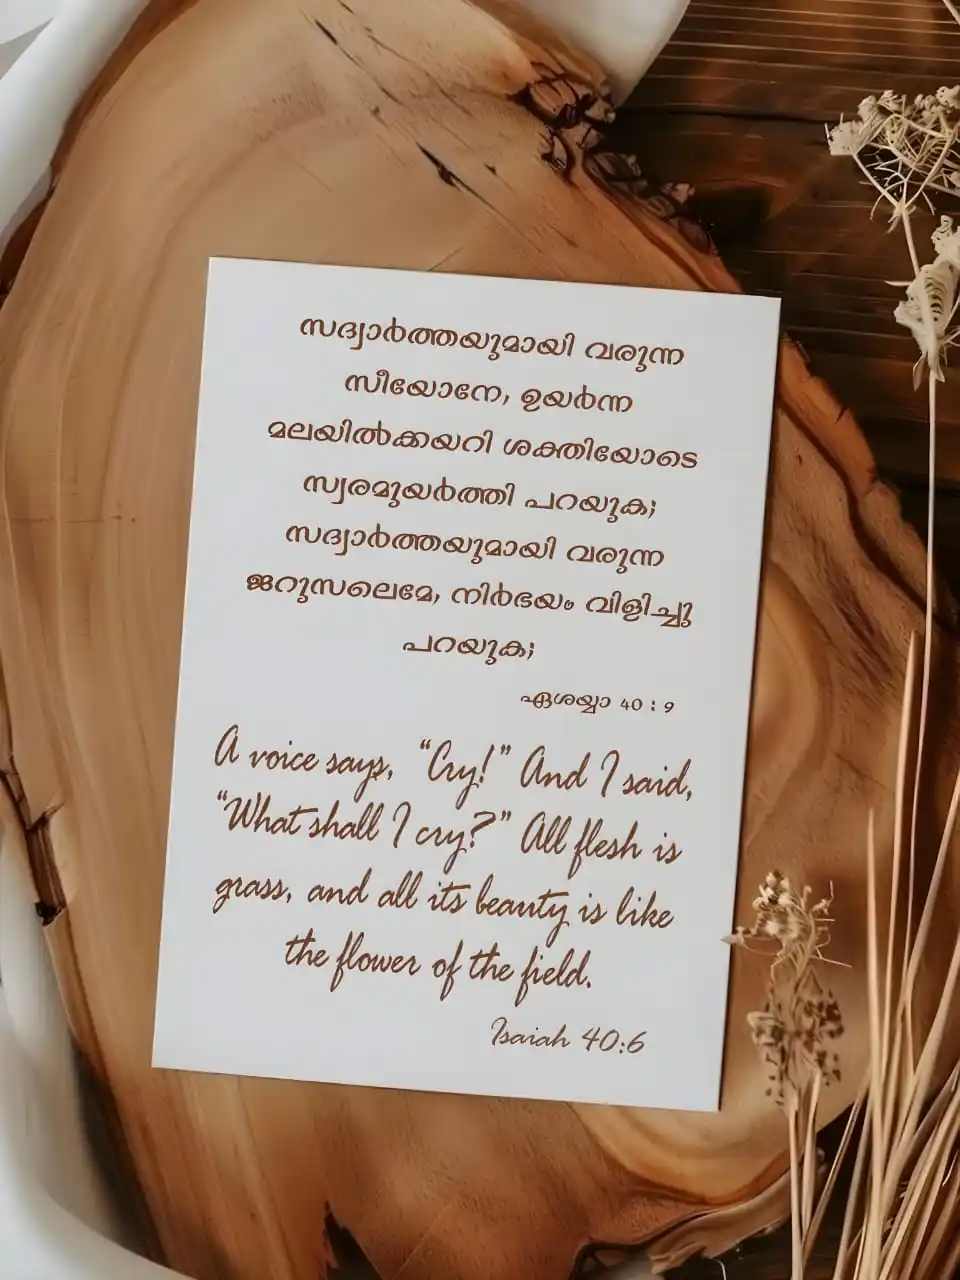 സദ്വാർത്തയുമായി വരുന്ന
സീയോനേ, ഉയർന്ന
മലയിൽക്കയറി ശക്തിയോടെ
സ്വരമുയർത്തി പറയുക;
സദ്വാർത്തയുമായി വരുന്ന
ജറുസലെമേ, നിർഭയം വിളിച്ചു
പറയുക;
ഏശയ്യാ 40 : 9
A voice says, “Cry!” And I said,
“What shall I cry?” All flesh is
grass, and all its beauty is like
the flower of the field.
Isaiah 40:6